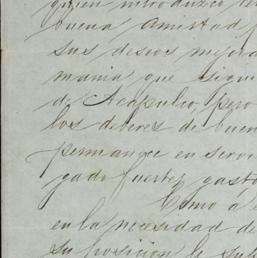 quien introduzco
buena amistad
sus deseos mejora
mania que sigue
de Acapulco, pero
los deberes de buen
permanece en servi
gado fuertes gasto
Como á
en la necesidad de
su posicion le sup